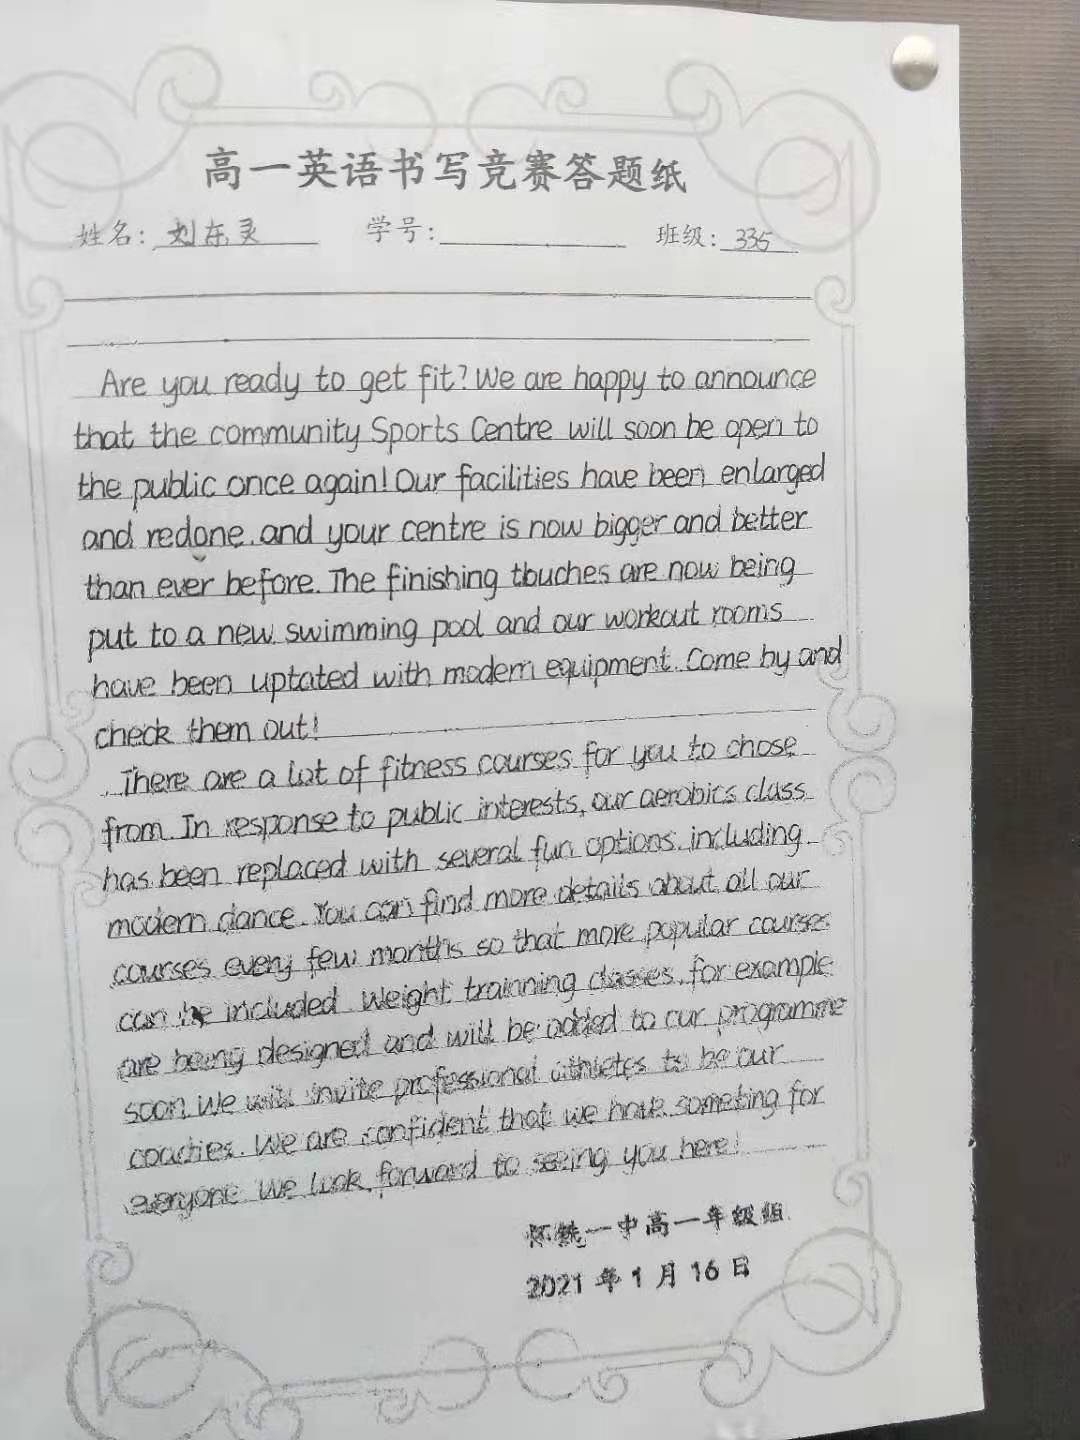 高一英语书写竞赛答题纸
姓名: 刘东灵 学号: 班级: 335
Are you ready to get fit? We are happy to announce
that the community Sports Centre will soon be open to
the public once again! Our facilities have been enlarged
and redone, and your centre is now bigger and better
than ever before. The finishing touches are now being
put to a new swimming pool and our workout rooms
have been uptated with modern equipment. Come by and
check them out!
There are a lot of fitness courses for you to chose
from. In response to public interests, our aerobics class
has been replaced with several fun options, including
modern dance. You can find more details about all our
courses every few months so that more popular courses
can be included. Weight trainning classes, for example
are being designed and will be added to our programme
soon. We will invite professional athletes to be our
coaches. We are confident that we have someting for
everyone. We look forward to seeing you here!
怀铁一中高一年级组
2021年1月16日